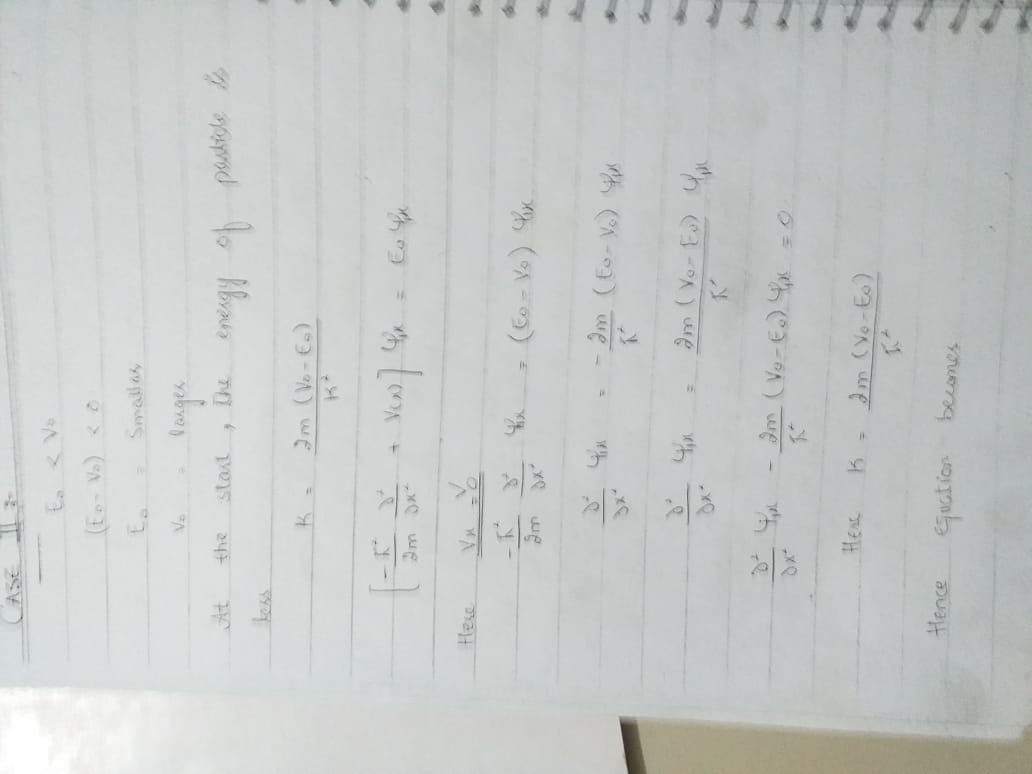 CASE II :-
E₀ < V₀
(E₀ - V₀) < 0
E₀ = Smaller
V₀ = larger
At the start, the energy of particle is
less
K = 2m (V₀ - E₀) / ħ²
[-ħ²/2m ∂²/∂x² + V(x)] ψ₁x = E₀ ψ₁x
Here Vx = V₀
-ħ²/2m ∂²/∂x² ψ₁x = (E₀ - V₀) ψ₁x
∂²/∂x² ψ₁x = - 2m/ħ² (E₀ - V₀) ψ₁x
∂²/∂x² ψ₁x = 2m (V₀ - E₀)/ħ² ψ₁x
∂²/∂x² ψ₁x - 2m/ħ² (V₀ - E₀) ψ₁x = 0
Here K = 2m (V₀ - E₀)/ħ²
Hence equation becomes